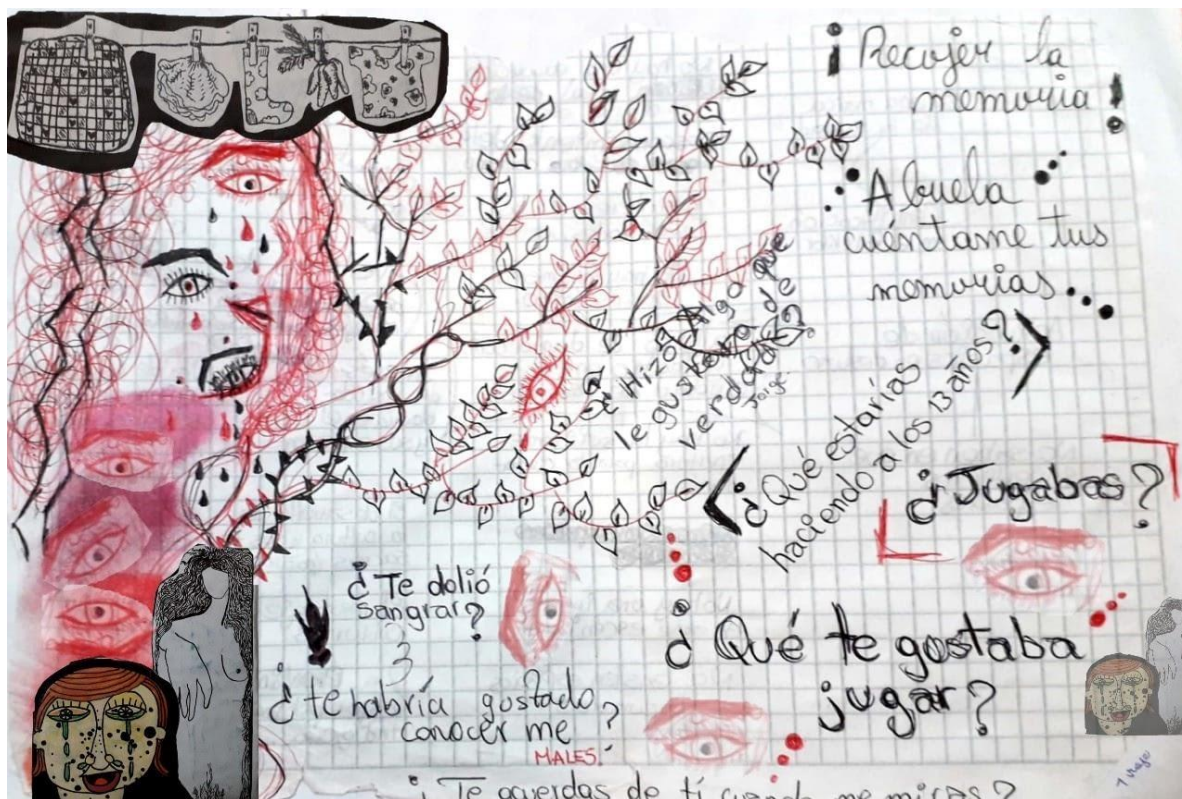 ¡Recojer la
memoria!
Abuela
cuéntame tus
memorias...
¿Hizo Algo que
le gustara de
verdad?
¿Qué estarías
haciendo a los 13 años?
¿Jugabas?
¿Te dolió
sangrar?
¿Qué te gustaba
jugar?
¿te habría gustado
conocer me?
MALES.
¿Te acuerdas de tí cuando me miras?